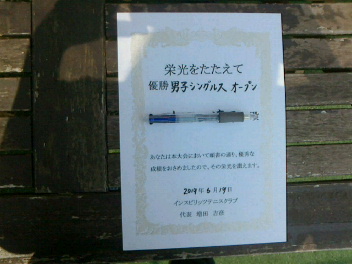 栄光をたたえて
優勝 男子シングルス オープン
あなたは本大会において頭書の通り、優秀な
成績をおさめましたので、その栄光を讃えます。
2019年6月19日
インスピリッツテニスクラブ
代表